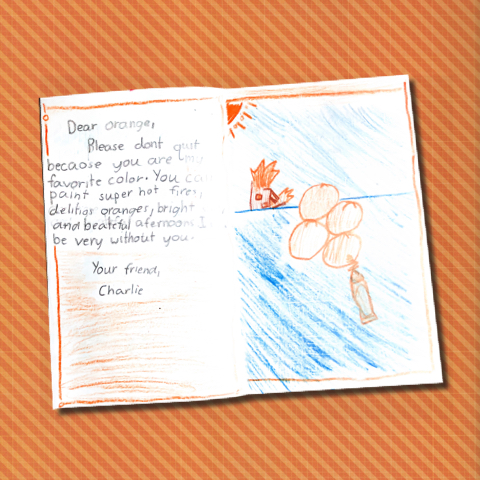 Dear orange,
Please dont quit
becaose you are my
favorite color. You can
paint super hot fires,
delitigs oranges, bright
and beatiful afernoons I
be very without you.
Your friend,
Charlie